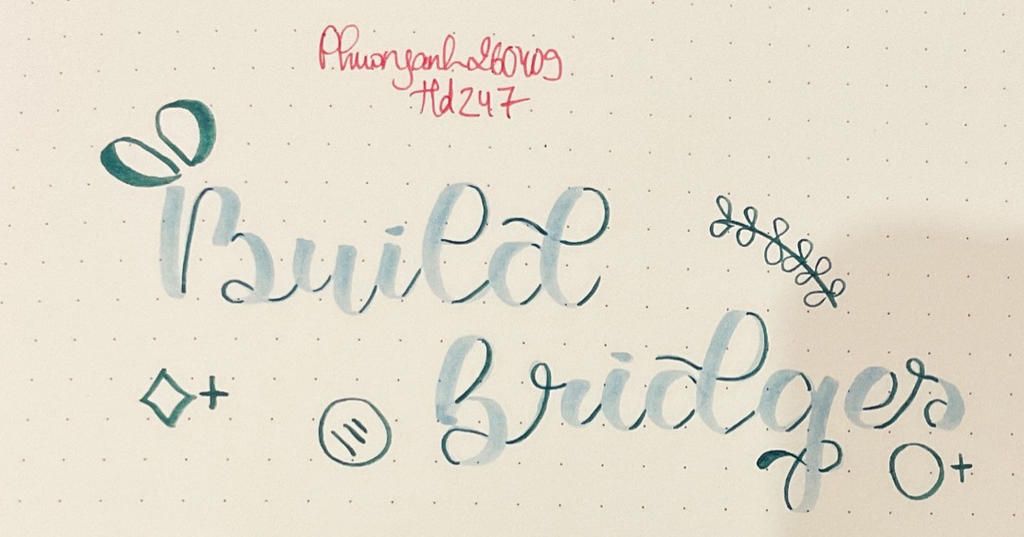 Phuonganh260409
Hd247
Build
Bridges